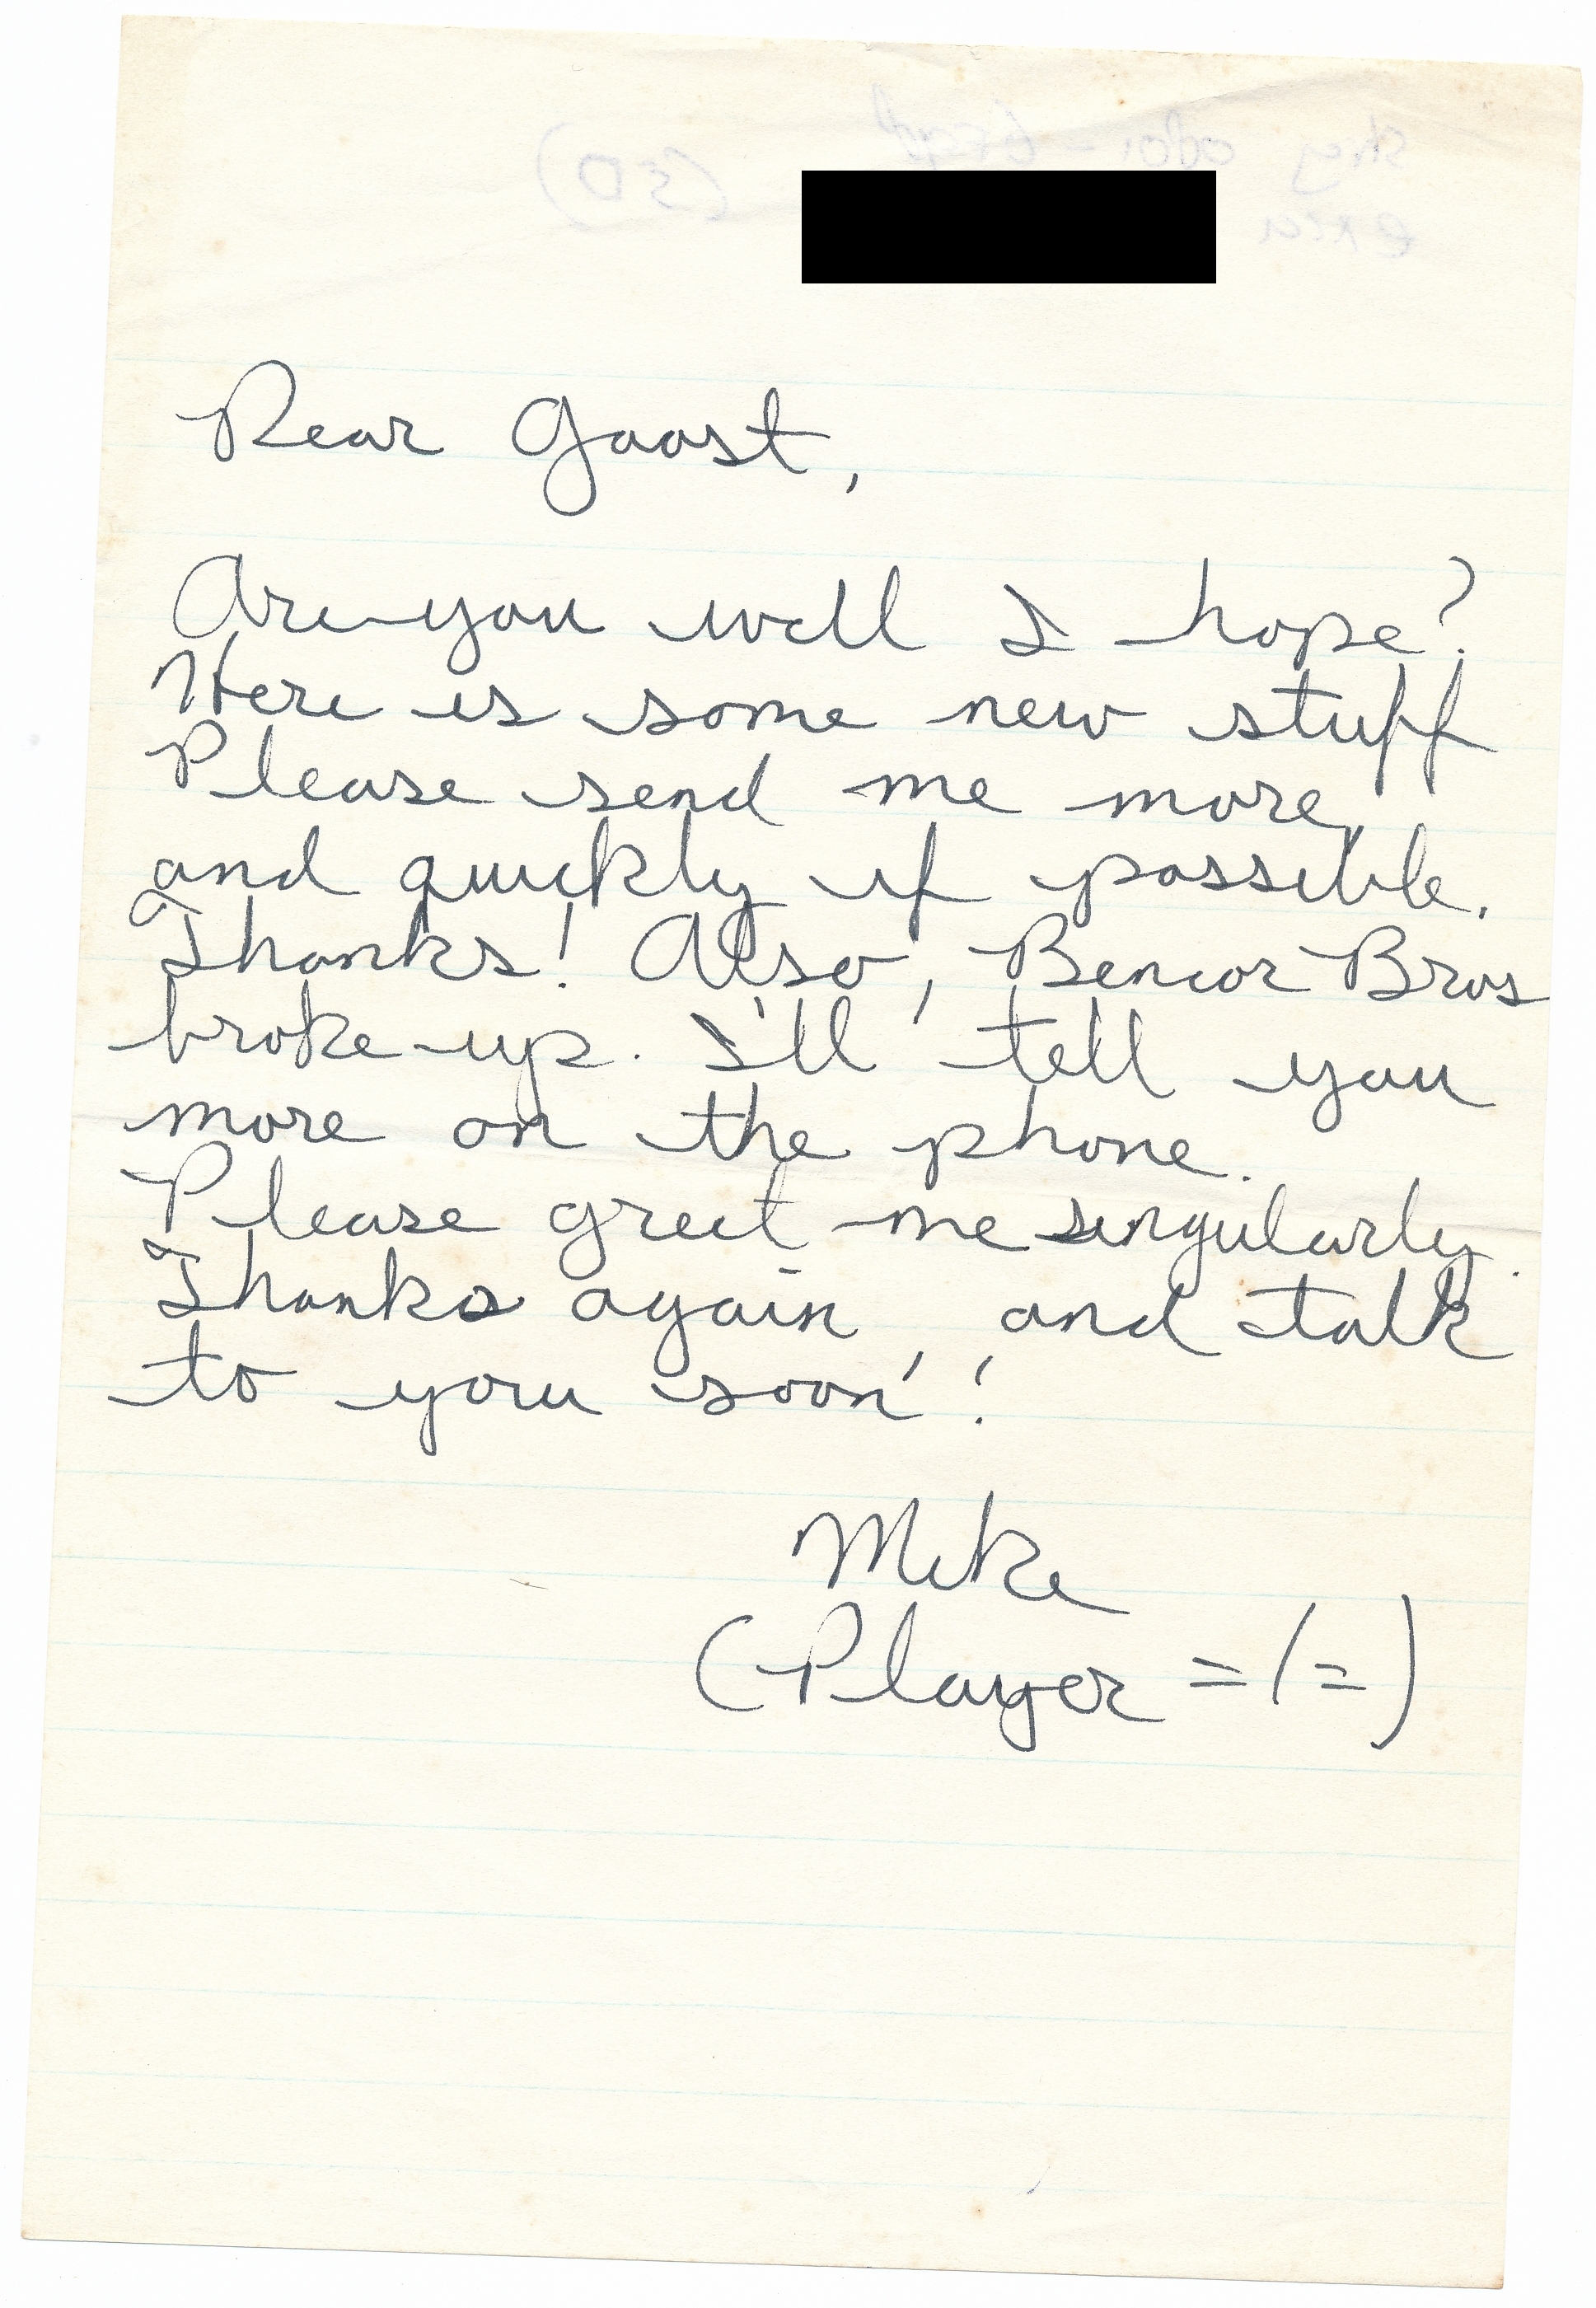 Dear Gaast,
Are you well I hope?
Here is some new stuff
Please send me more,
and quickly if possible.
Thanks! Also, Bencor Bros
broke up. I'll tell you
more on the phone.
Please greet me singularly.
Thanks again, and talk
to you soon!
Mike
(Player =/=)